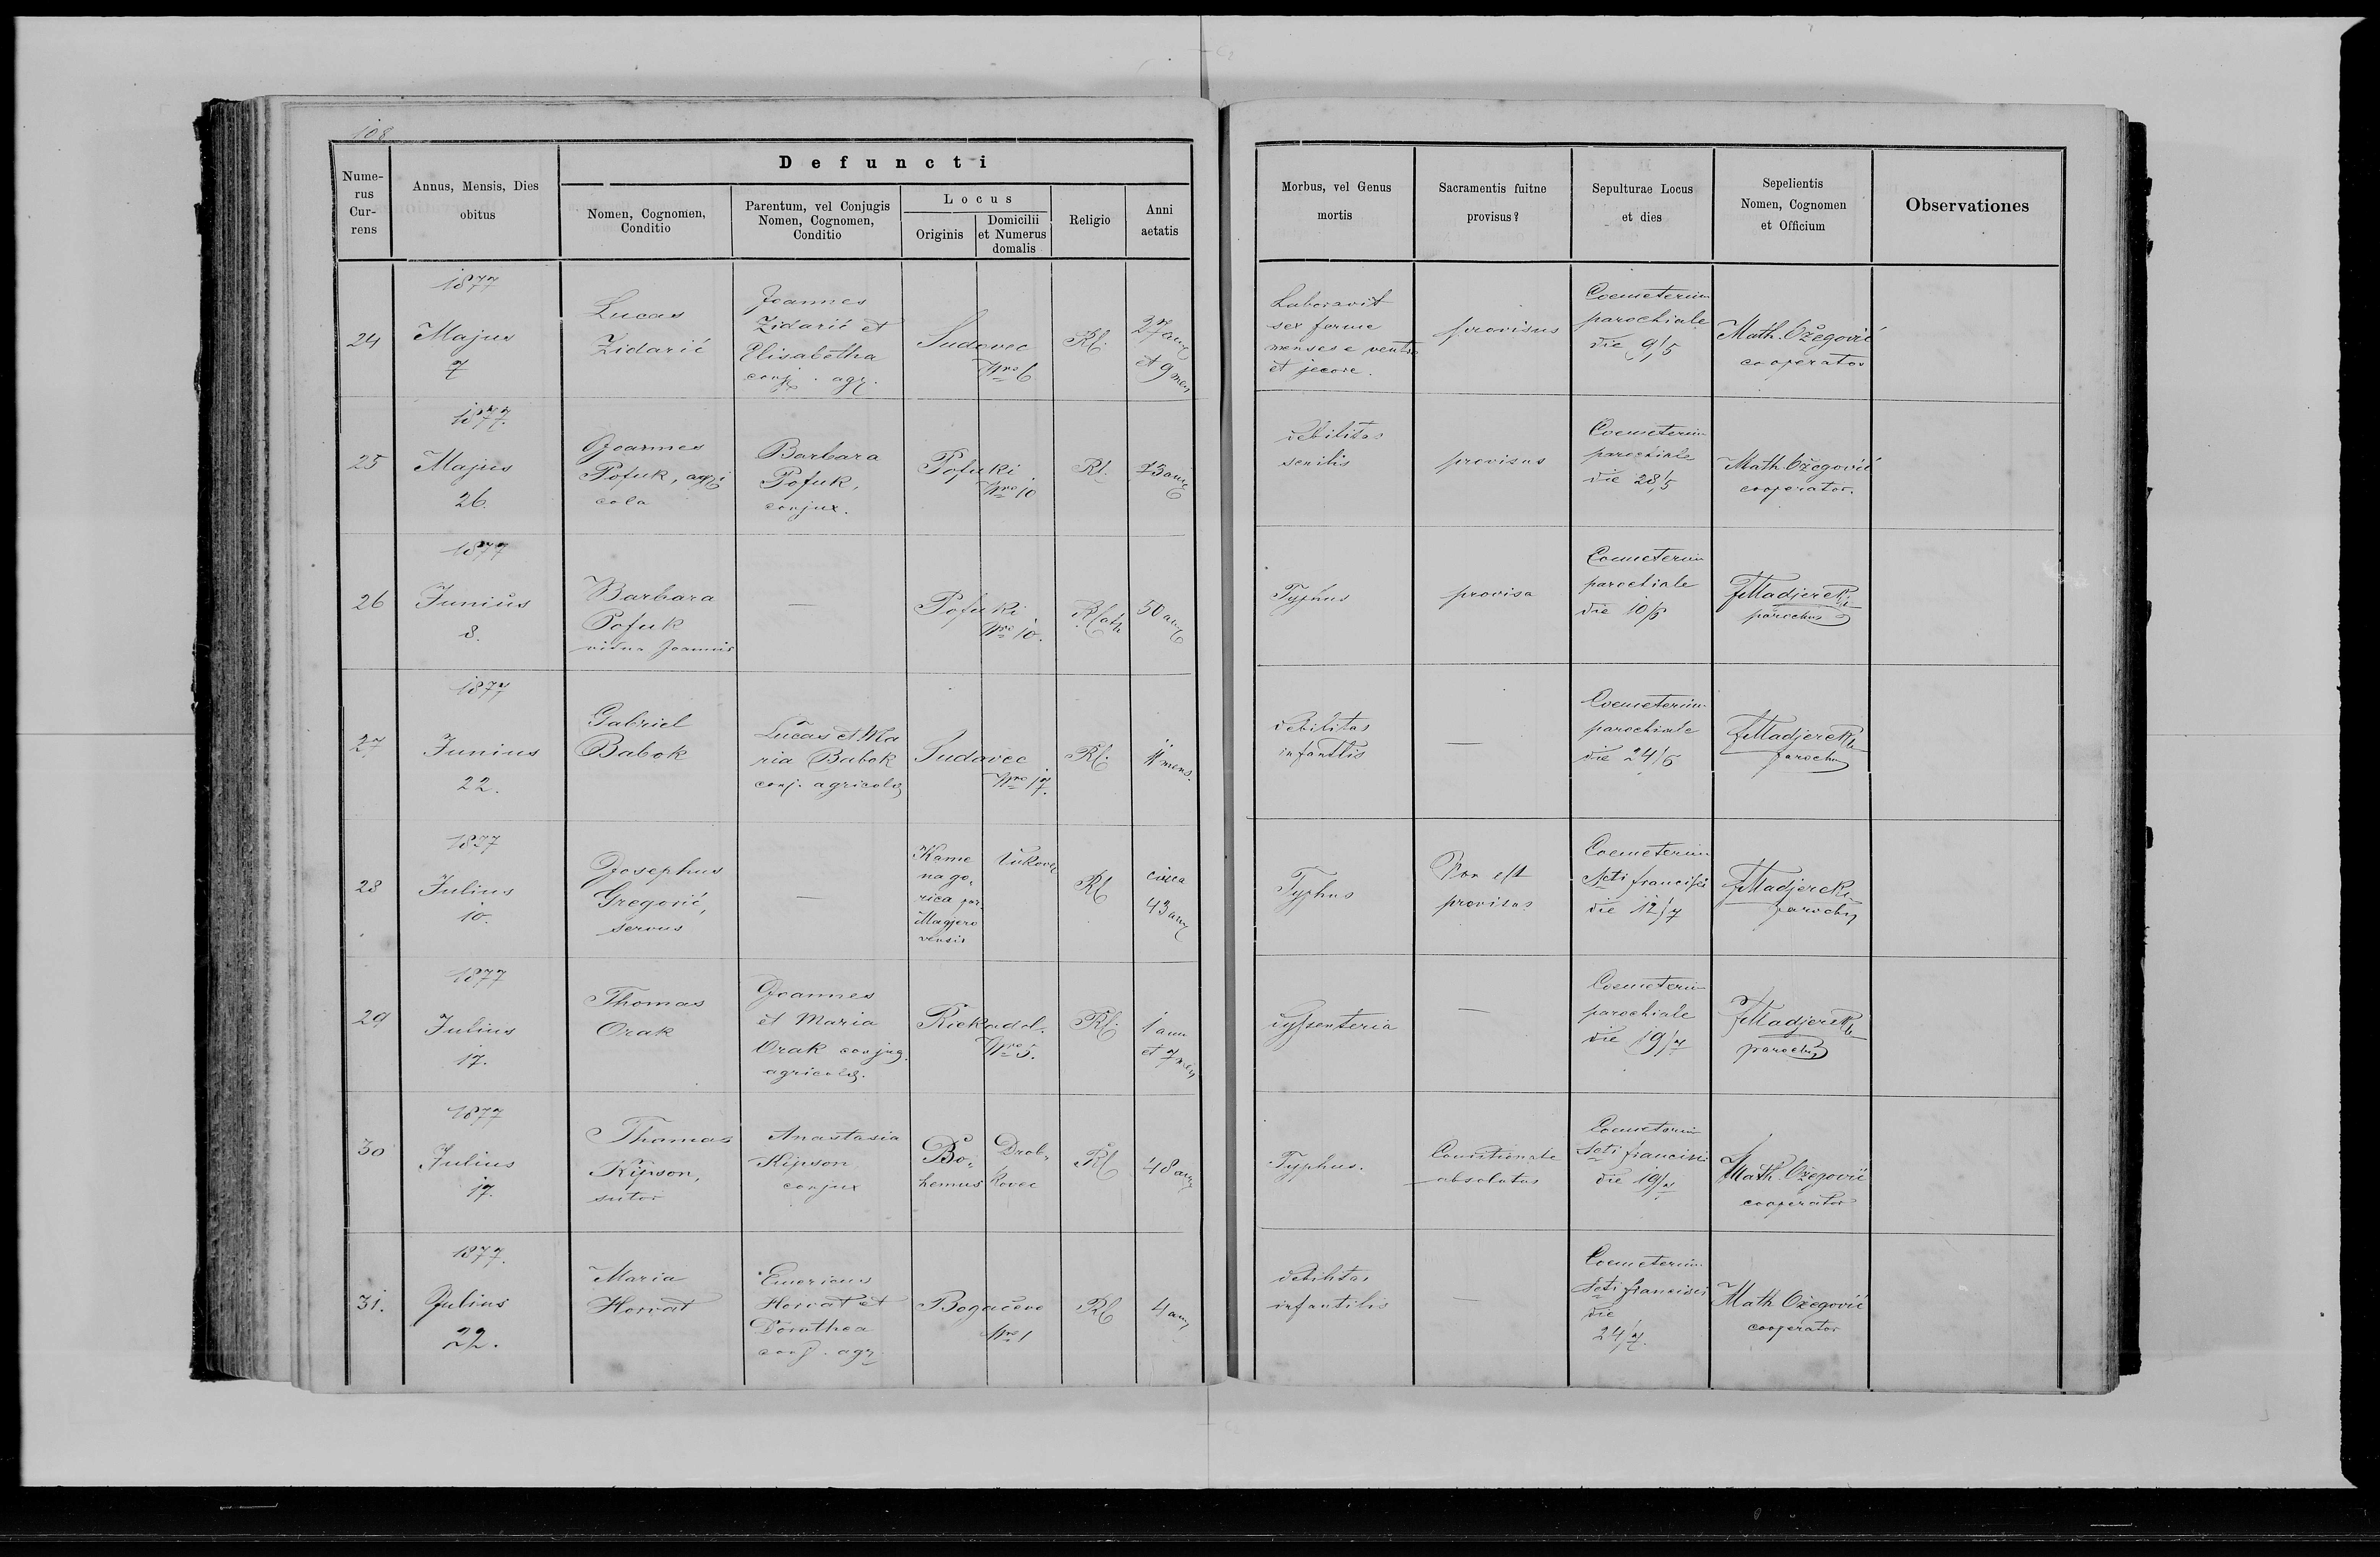 108
Defuncti
Nume-
rus
Cur-
rens
Annus, Mensis, Dies
obitus
Nomen, Cognomen,
Conditio
Parentum, vel Conjugis
Nomen, Cognomen,
Conditio
Locus
Originis
Domicilii
et Numerus
domalis
Religio
Anni
aetatis
Morbus, vel Genus
mortis
Sacramentis fuitne
provisus?
Sepulturae Locus
et dies
Sepelientis
Nomen, Cognomen
et Officium
Observationes
24
1877
Majus
7
Lucas
Zidarić
Joannes
Zidarić et
Elisabetha
conj. agr.
Sudovec
Nro 6
Rf.
27 ann
et 9 men
Laboravit
sex ferme
menses e ventre
et jecore.
provisus
Coemeterium
parochiale
die 9/5
Math. Ožegović
cooperator
25
1877.
Majus
26.
Joannes
Pofuk, agri
cola
Barbara
Pofuk,
conjux.
Pofuki
Nro 10
Rf.
debilitas
senilis
provisus
Coemeterium
parochiale
die 28/5
Math. Ožegović
cooperator.
26
1877
Junius
8.
Barbara
Pofuk
vidua Joannis
—
Pofuki
Nro 10.
50 ann
Typhus
provisa
Coemeterium
parochiale
die 10/6
FMadjereki
parochus
27
1877
Junius
22.
Gabriel
Babok
Lucas et Ma
ria Babok
conj. agricolae
Sudovec
Nro 17.
Rf.
mens.
debilitas
infantilis
—
Coemeterium
parochiale
die 24/6
FMadjereki
parochus
28
1877
Julius
10.
Josephus
Gregorić,
servus
—
Kame
na go,
rica par.
Madjere
vensis
Vukovec
Rf
circa
43 ann
Typhus
Non est
provisus
Coemeterium
Scti francisci
die 12/7
FMadjereki
parochus
29
1877
Julius
17.
Thomas
Orak
Joannes
et Maria
Orak conjug.
agricolae.
Riekadol.
Nro 5.
Rf.
1 ann
et 7 men
dyssenteria
—
Coemeterium
parochiale
die 19/7
FMadjereki
parochus
30
1877
Julius
17.
Thomas
Kipson,
sutor
Anastasia
Kipson
conjux
Bo,
hemus
Drob,
kovec
Rf
48 ann
Typhus.
Conditionate
absolutus
Coemeterium
Scti francisci
die 19/7
Math. Ožegović
cooperator
31.
1877.
Julius
22.
Maria
Horvat
Emericus
Horvat et
Dorothea
conj. agr
Bogačevo
Nro 1
Rf
4 ann
debilitas
infantilis
—
Coemeterium
Scti francisci
die
24/7.
Math Ožegović
cooperator